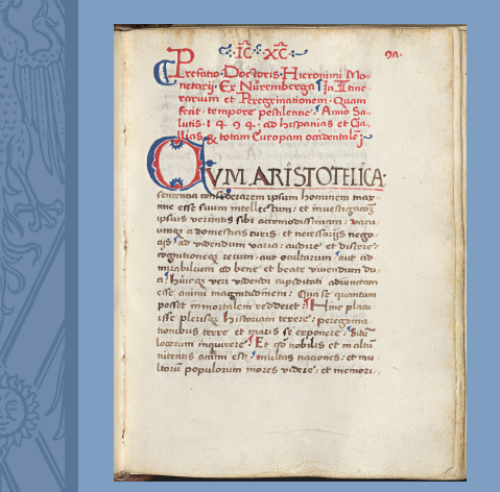 ·IC̄· XC̄·
92.
Prefatio · Doctoris · Hieronimi Mo-
netarij · Ex Nüremberga · In Itine-
rarium et Peregrinationem · Quam
fecit tempore pestilentie · Anno Sa-
lutis · 1 4 9 4 · ad Hispanias et Ga-
llias & totam Europam occidentalē
CVM · ARISTOTELICA ·
sententia considerarem ipsum hominem max-
ime esse suum intellectum : et
ipsius veritatis sibi accomodissimam : vacu-
a domesticis curis et necessarijs nego-
cijs ad videndum varia : audire et discere :
cognitionem rerum aut ocultarum aut ad-
mirabilium ad bene et beate vivendum du-
videndi cupiditati adiunctam
esse animi magnitudinem : Qua se quantum
posset inmortalem redderet Hinc placu-
isse plerisque Historiam texere : peregrina-
tionibus terre et maris se exponere : Situ
locorum inquirere : Et nobilis et in altū
nitentis animi est : multas naciones : et mu-
ltorū populorum mores videre : et memori-